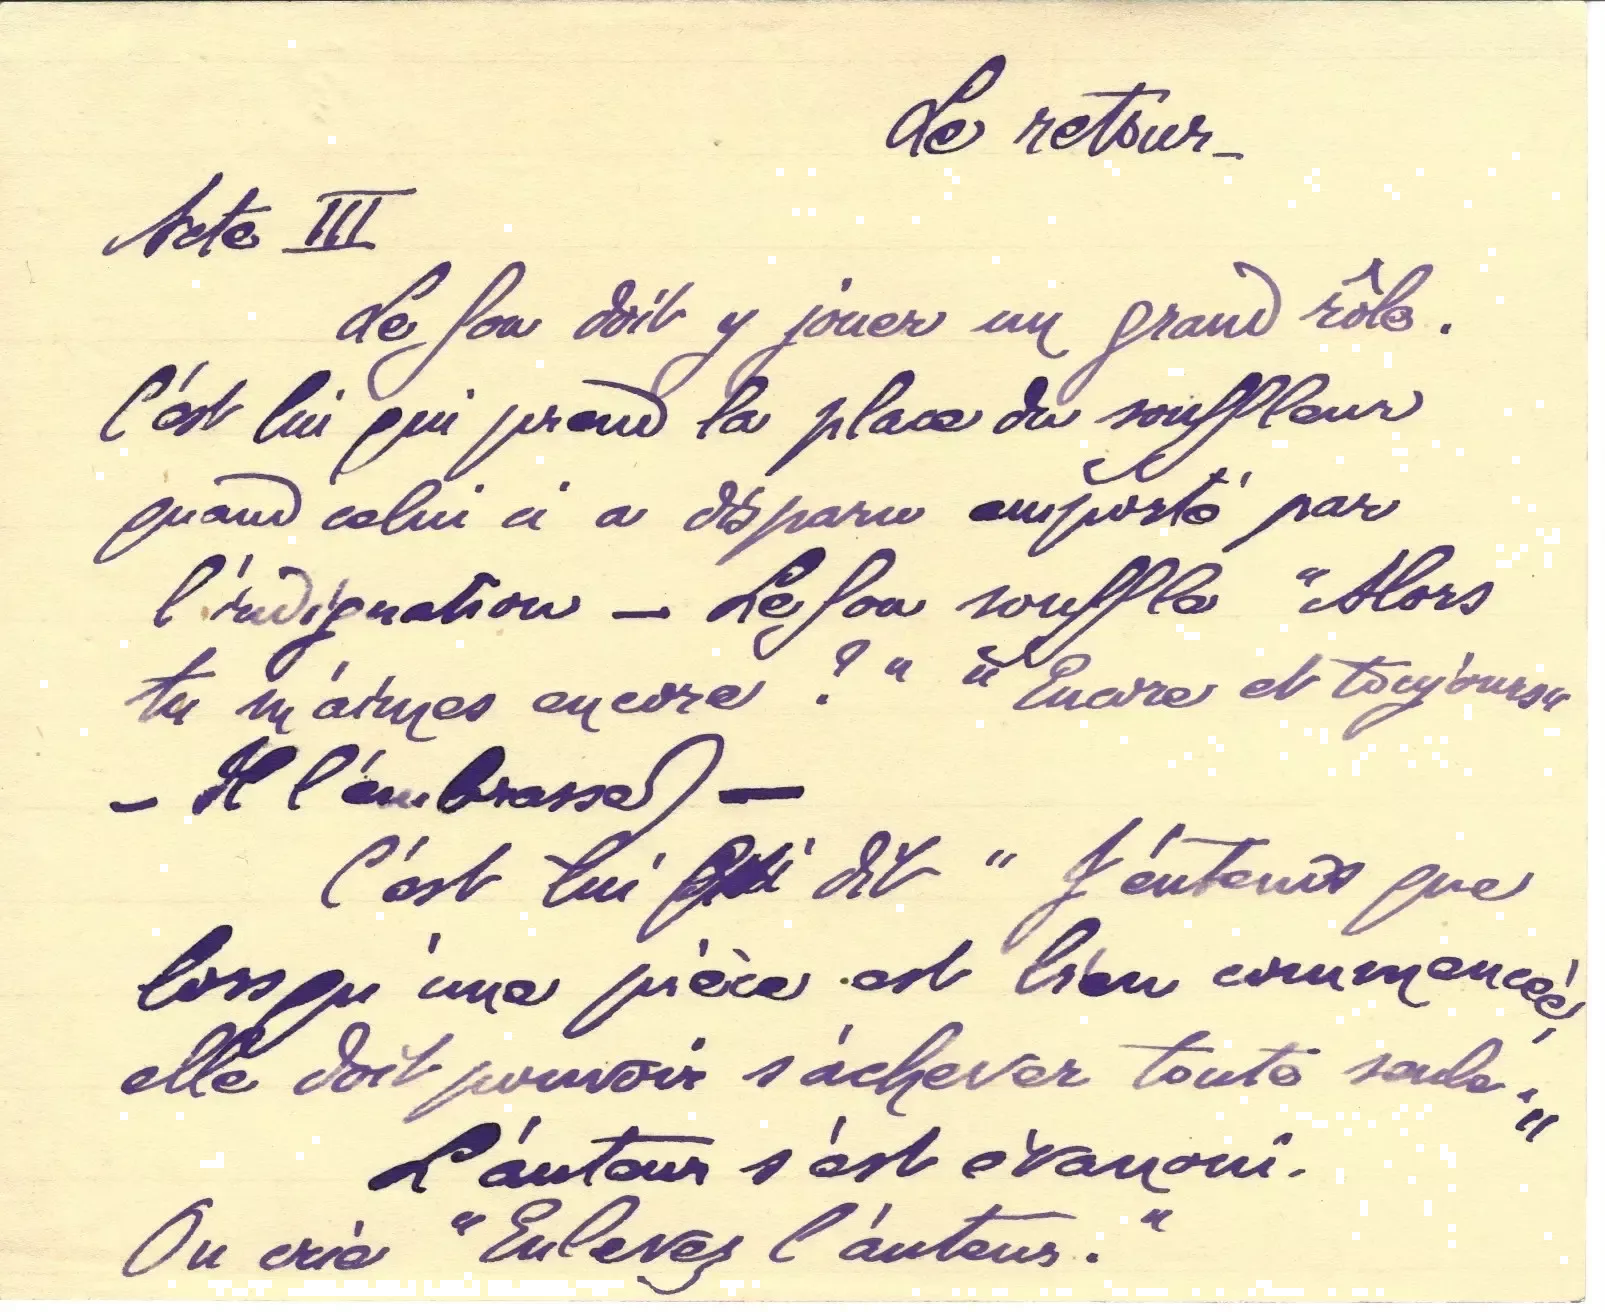 Le retour_
Acte III
Le fou doit y jouer un grand rôle.
C'est lui qui prend la place du souffleur
quand celui ci a disparu emporté par
l'indignation — Le fou souffle "Alors
tu m'aimes encore ?" "Encore et toujours"
— Il l'embrasse) —
C'est lui qui dit "J'entends que
lorsqu'une pièce est bien commencée,
elle doit pouvoir s'achever toute seule."
L'auteur s'est évanoui.
On crie "Enlevez l'auteur."